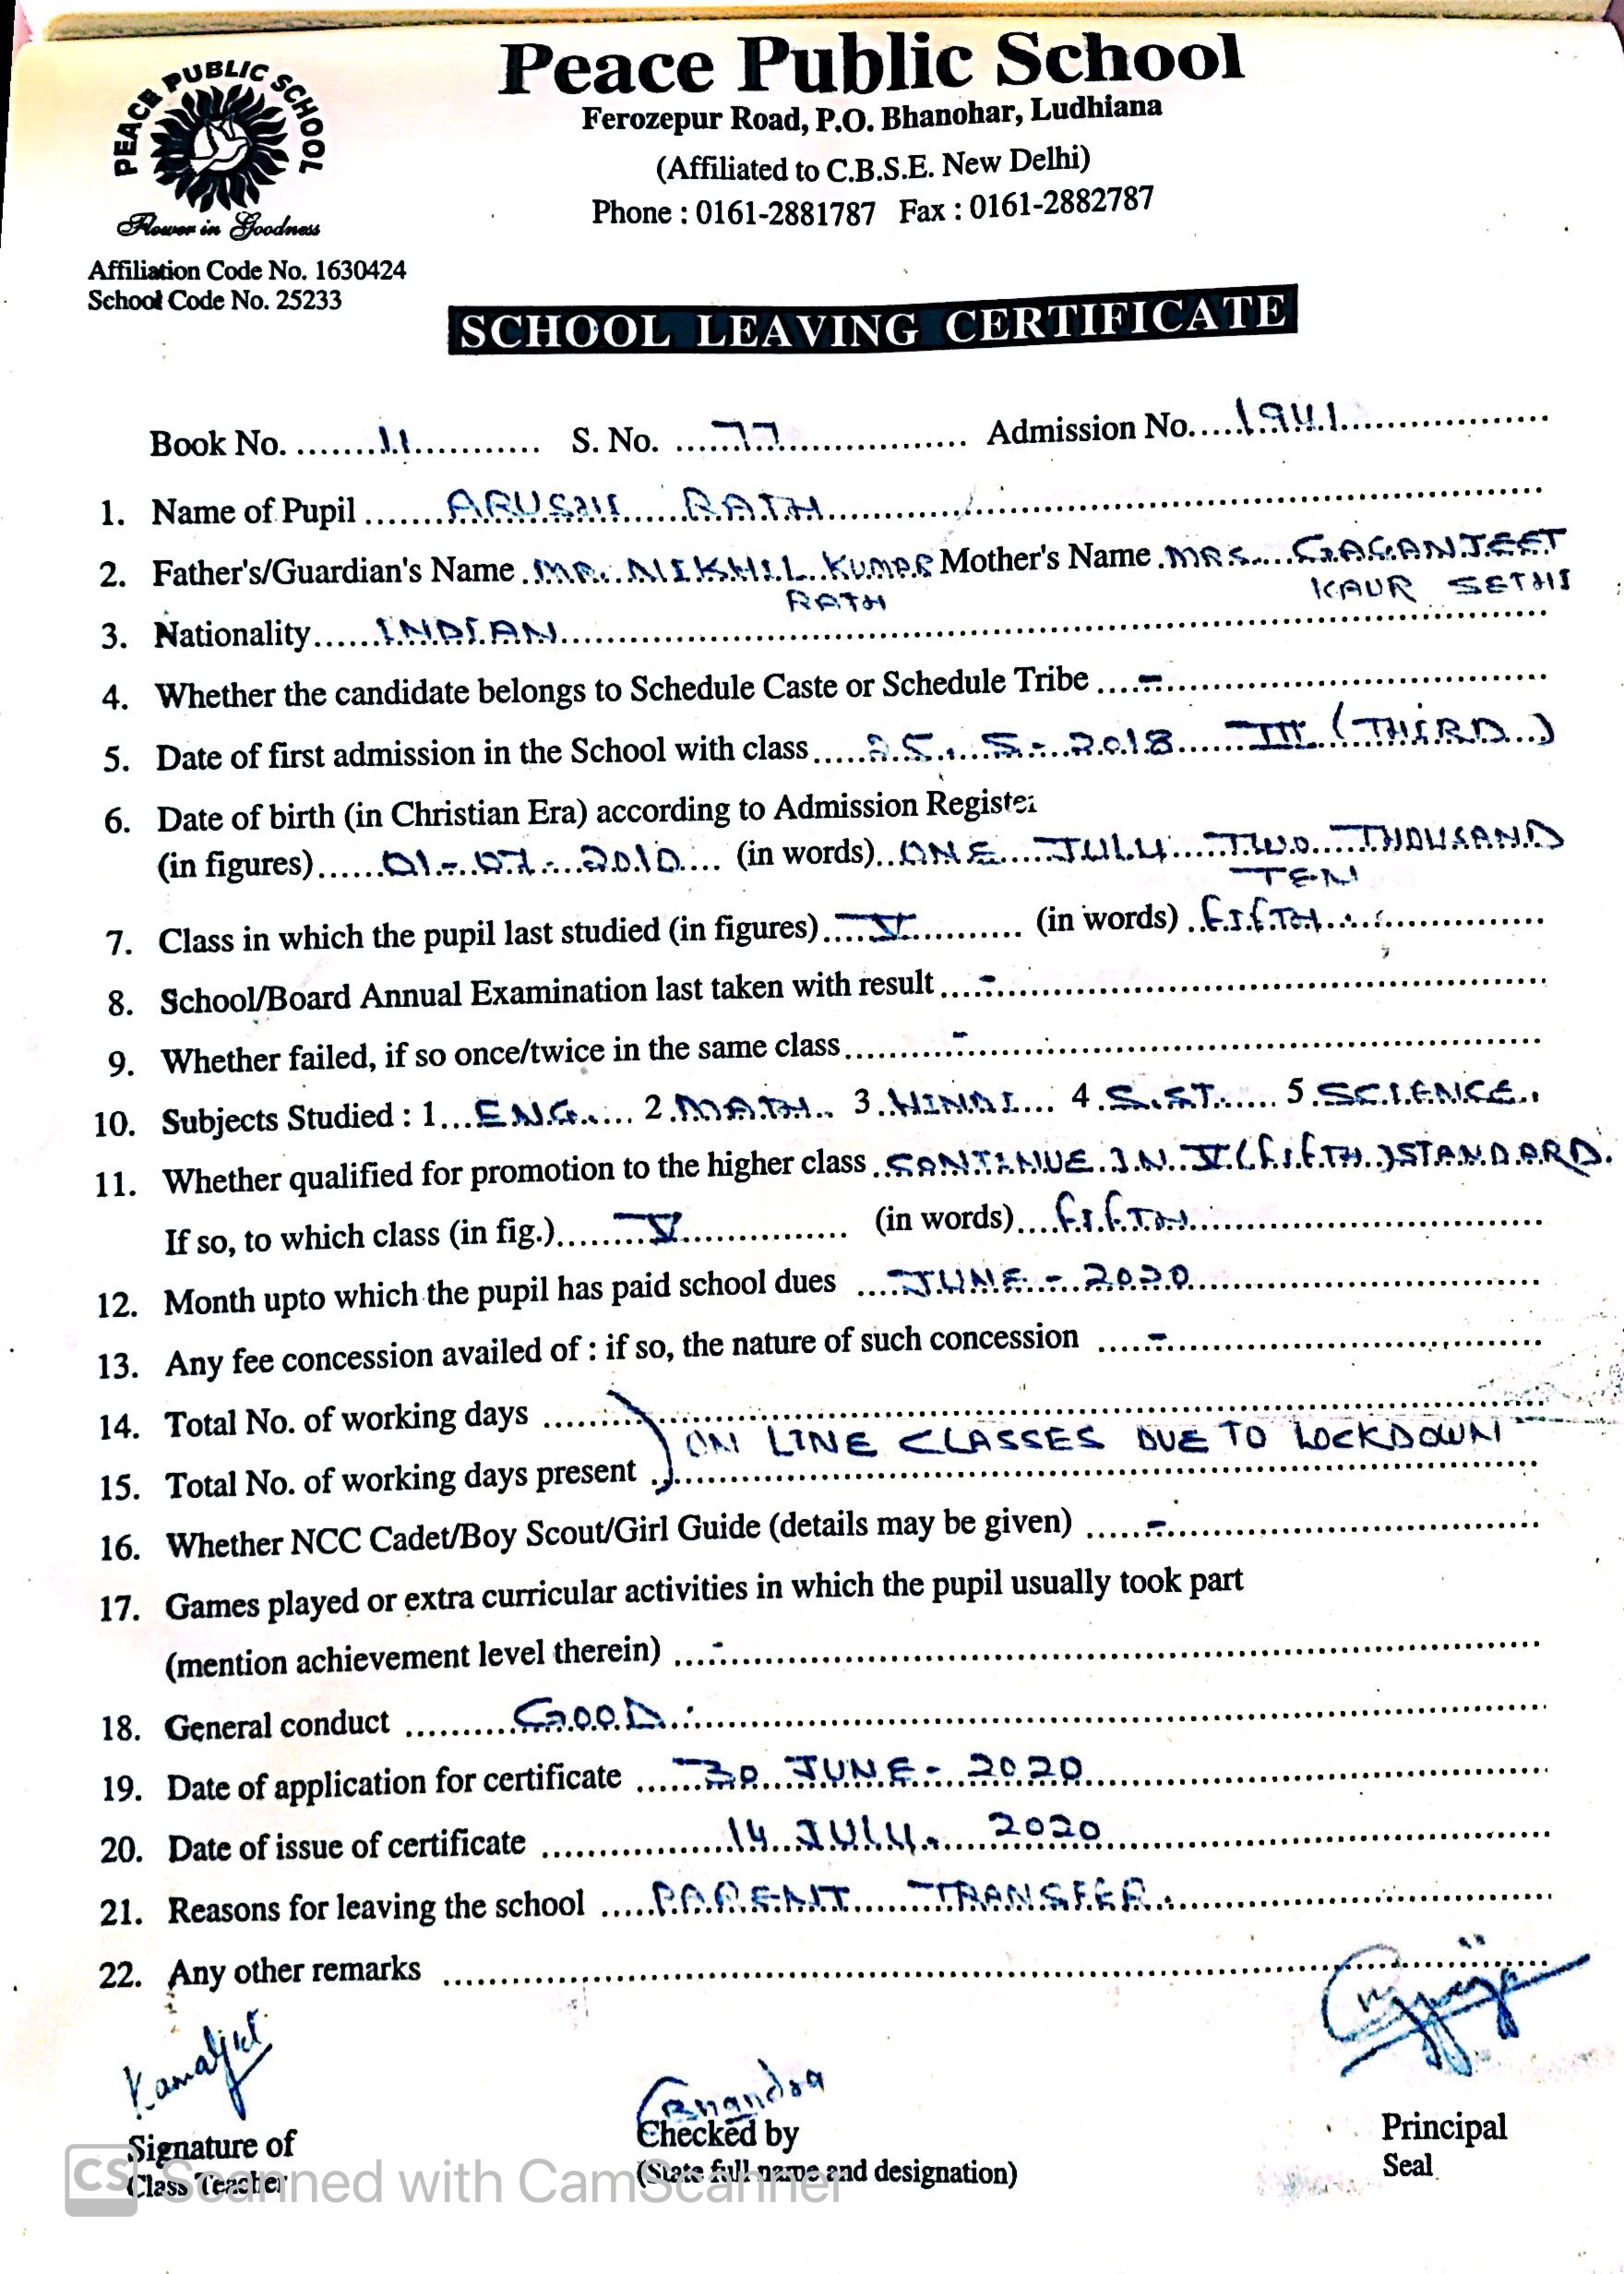 PEACE PUBLIC SCHOOL
Flower in Goodness
Affiliation Code No. 1630424
School Code No. 25233
Peace Public School
Ferozepur Road, P.O. Bhanohar, Ludhiana
(Affiliated to C.B.S.E. New Delhi)
Phone : 0161-2881787 Fax : 0161-2882787
SCHOOL LEAVING CERTIFICATE
Book No. 11 S. No. 77 Admission No. 1941
1. Name of Pupil ARUSHI RATH
2. Father's/Guardian's Name MR. NIKHIL KUMAR Mother's Name MRS. GAGANJEET
RATH KAUR SETHI
3. Nationality INDIAN
4. Whether the candidate belongs to Schedule Caste or Schedule Tribe -
5. Date of first admission in the School with class 25-5-2018 III (THIRD)
6. Date of birth (in Christian Era) according to Admission Register
(in figures) 01-07-2010 (in words) ONE JULY TWO THOUSAND
TEN
7. Class in which the pupil last studied (in figures) V (in words) FIFTH
8. School/Board Annual Examination last taken with result -
9. Whether failed, if so once/twice in the same class -
10. Subjects Studied : 1 ENG. 2 MATH. 3 HINDI 4 S.ST. 5 SCIENCE.
11. Whether qualified for promotion to the higher class CONTINUE IN V (FIFTH) STANDARD.
If so, to which class (in fig.) V (in words) FIFTH
12. Month upto which the pupil has paid school dues JUNE - 2020
13. Any fee concession availed of : if so, the nature of such concession -
14. Total No. of working days
ON LINE CLASSES DUE TO LOCKDOWN
15. Total No. of working days present
16. Whether NCC Cadet/Boy Scout/Girl Guide (details may be given) -
17. Games played or extra curricular activities in which the pupil usually took part
(mention achievement level therein) -
18. General conduct GOOD
19. Date of application for certificate 30 JUNE - 2020
20. Date of issue of certificate 14 JULY. 2020
21. Reasons for leaving the school PARENT TRANSFER.
22. Any other remarks
Kamaljit
Signature of
Class Teacher
Checked by
(State full name and designation)
Principal
Seal
CS Scanned with CamScanner